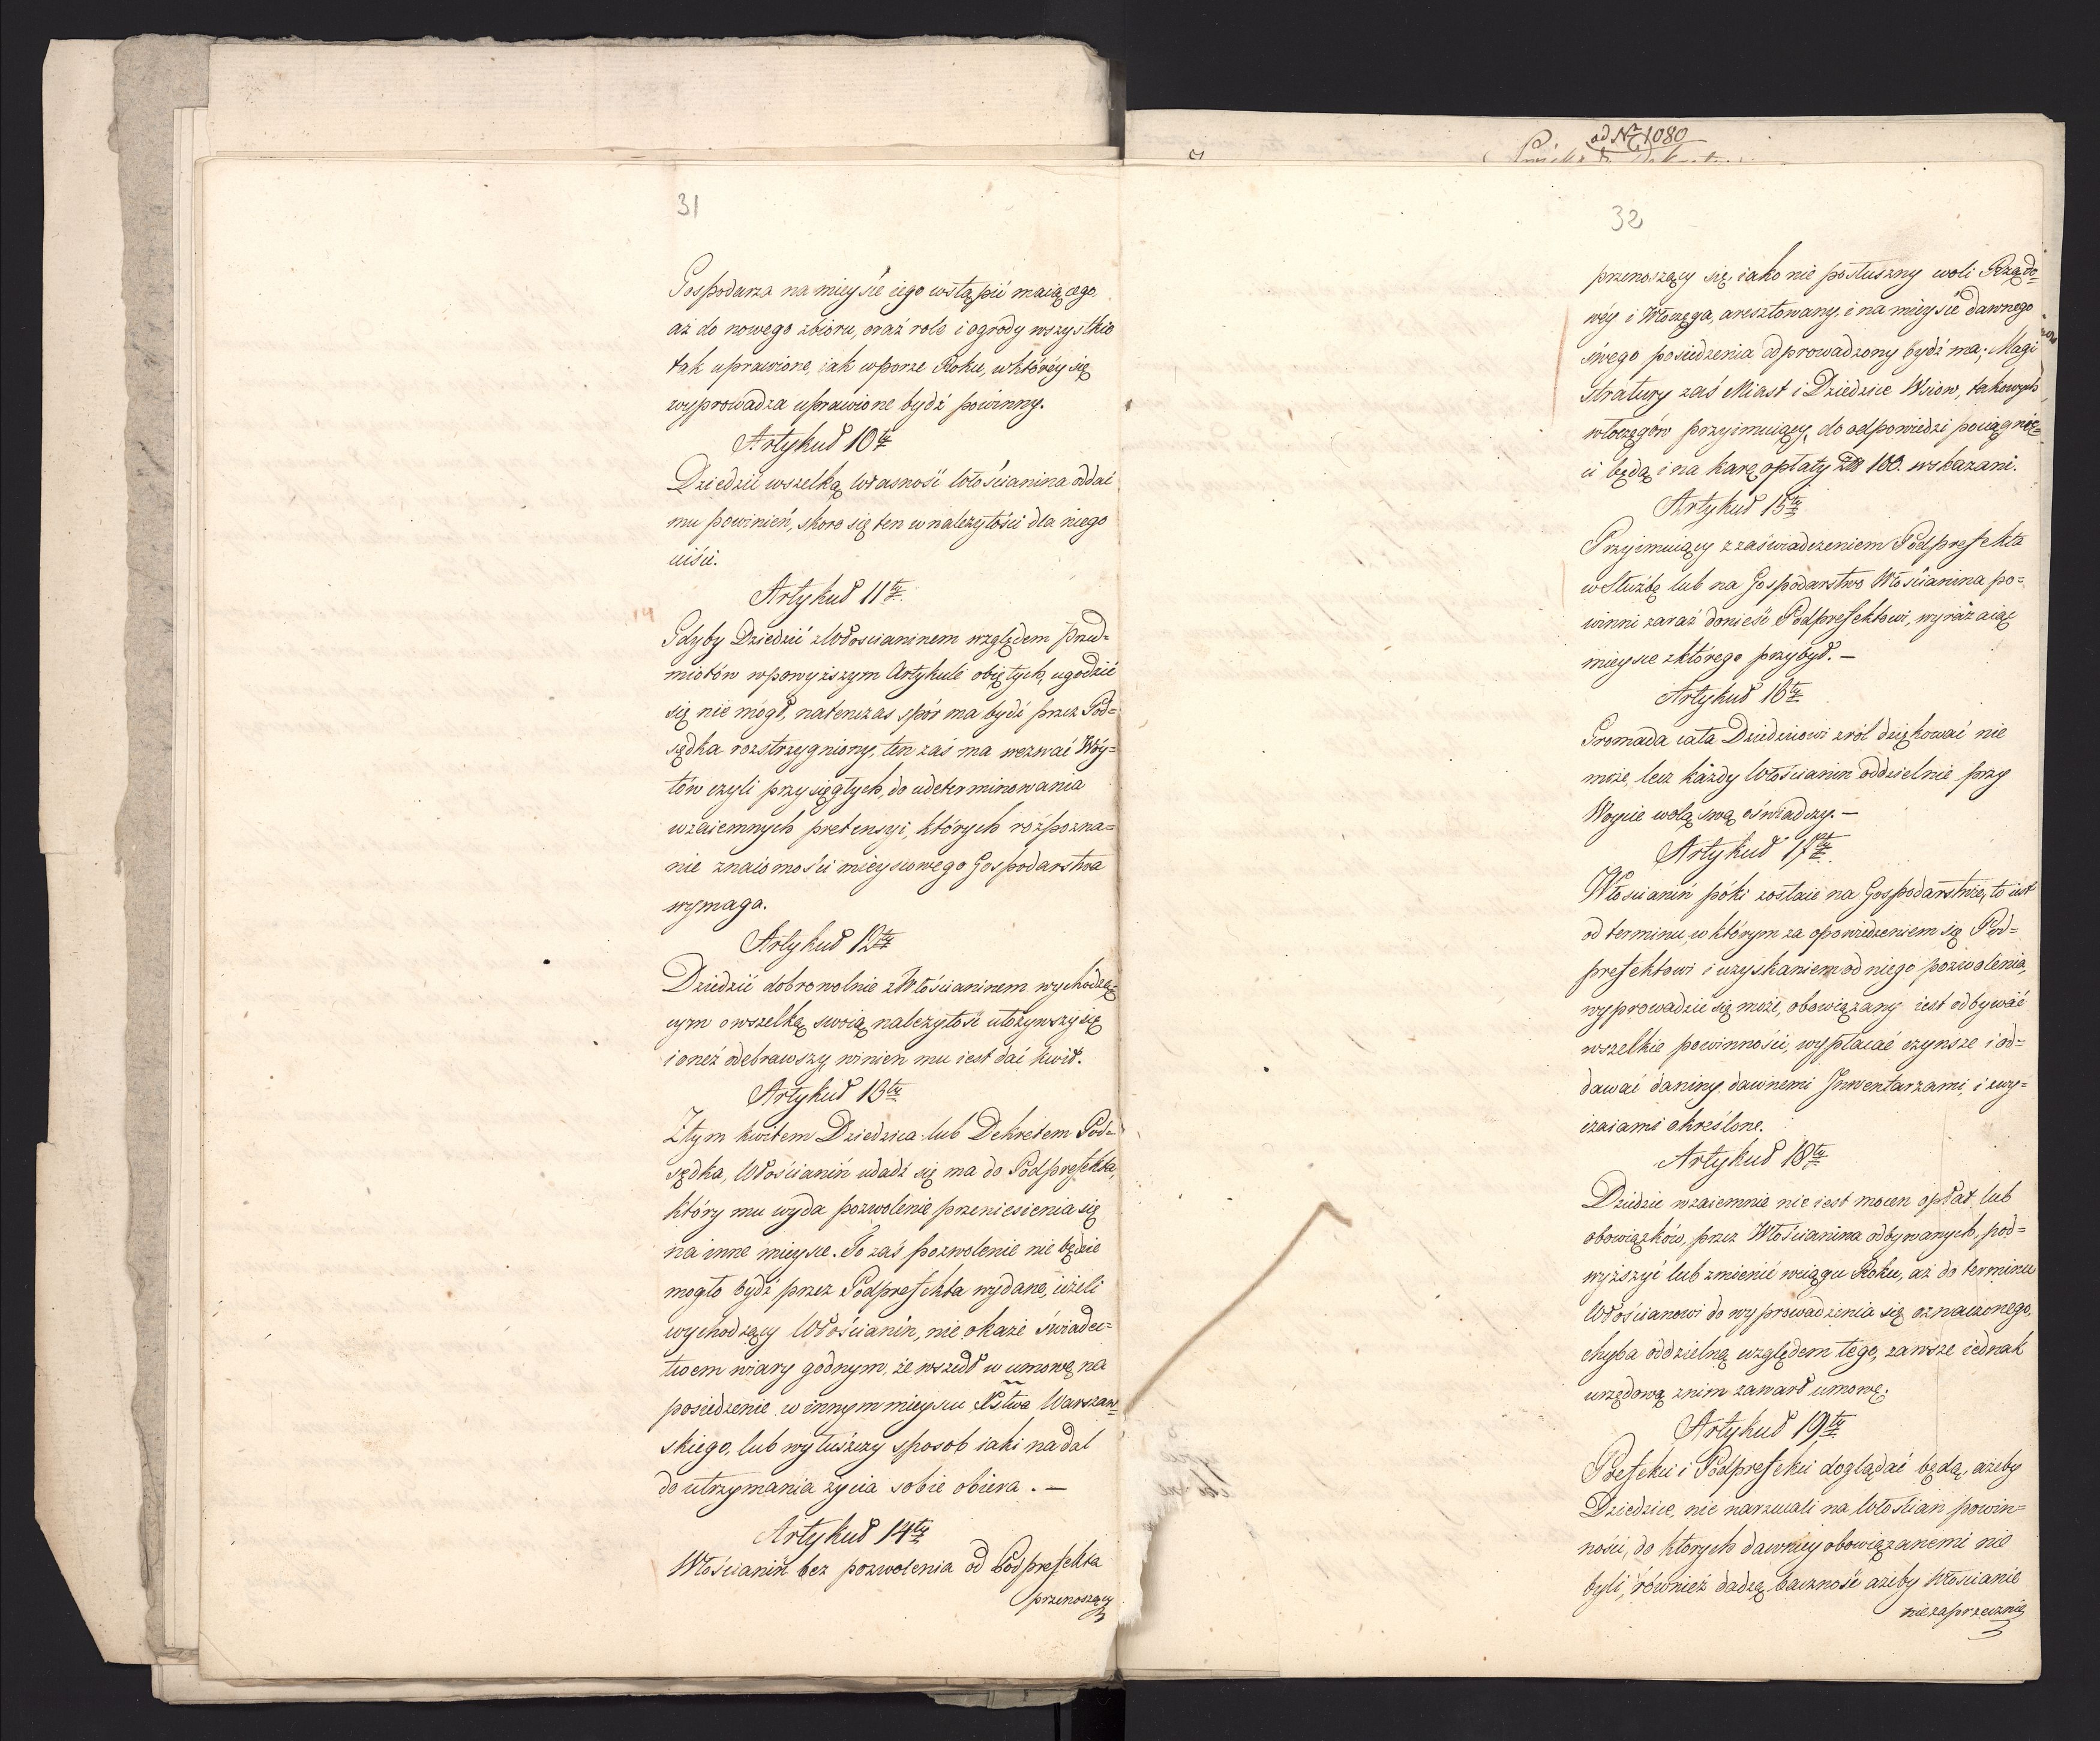 31
Gospodarza na mieysce iego wstąpić maiącego
aż do nowego zbioru, oraz role i ogrody wszystkie
tak uprawione, iak w porze Roku, w któréy się
wyprowadza uprawione bydź powinny.
Artykuł 10ty
Dziedzic wszelką własność Włościanina oddać
mu powinien, skoro się ten w należytości dla niego
uiści.
Artykuł 11ty
Gdyby Dziedzic z Włościaninem względem przed=
miotów w powyższym Artykule obiętych, ugodzić
się nie mógł, natenczas spór ma bydź przez Pod=
sędka rozstrzygniony, ten zaś ma wezwać Wóy=
tów czyli przysięgłych, do udeterminowania
wzaiemnych pretensyi, których rozpozna=
nie znaiomości mieyscowego Gospodarstwa
wymaga.
Artykuł 12ty
Dziedzic dobrowolnie z Włościaninem wychodzą=
cym o wszelką swoią należytość ułożywszy się
i oneż odebrawszy, winien mu iest dać kwit.
Artykuł 13ty
Z tym kwitem Dziedzica lub Dekretem Pod=
sędka, Włościanin udadź się ma do Podprefekta,
który mu wyda pozwolenie przeniesienia się
na inne mieysce. To zaś pozwolenie nie będzie
mogło bydź przez Podprefekta wydane, ieżeli
wychodzący Włościanin, nie okaże świadec=
twem wiary godnym, że wszedł w umowę na
posiedzenie w innym mieyscu Xstwa Warszaw=
skiego, lub wyłuszczy sposob iaki nadal
do utrzymania życia sobie obiera. —
Artykuł 14ty
Włościanin bez pozwolenia od Podprefekta
przenoszący
ad Nr 1080
32
przenoszący się, iako nie posłuszny woli Rządo=
wéy i Włoczęga, aresztowany, i na mieysce dawnego
swego posiedzenia odprowadzony bydź ma; Magi
stratury zaś Miast i Dziedzice Wsiow, takowych
włoczęgów przyimuiący, do odpowiedzi pociągnię=
ci będą i na karę opłaty Złł 100. wskazani.
Artykuł 15ty
Przyimuiący z zaświadczeniem Podprefekta
w Służbę lub na Gospodarstwo Włościanina po=
winni zaraz donieść Podprefektowi, wyrażaiąc
mieysce z którego przybył. —
Artykuł 16ty
Gromada cała Dziedzicowi z ról dziękować nie
może, lecz każdy Włościanin oddzielnie przy
Woycie wolą swą oświadczy. —
Artykuł 17ty
Włościanin póki zostaie na Gospodarstwie, to iest
od terminu, w którym za opowiedzeniem się Pod=
prefektowi i uzyskaniem od niego pozwolenia,
wyprowadzić się może, obowiązany iest odbywać
wszelkie powinności, wypłacać czynsze i od=
dawać daniny dawnemi Inwentarzami, i zwy=
czaiami określone.
Artykuł 18ty
Dziedzic wzaiemnie nie iest mocen opłat lub
obowiązków, przez Włościanina odbywanych, pod=
wyższyć lub zmienić w ciągu Roku, aż do terminu
Włościanowi do wyprowadzenia się oznaczonego,
chyba oddzielną względem tego, zawsze iednak
urzędową z nim zawarł umowę.
Artykuł 19ty
Prefekci i Podprefekci doglądać będą, ażeby
Dziedzice, nie narzucali na Włościan powin=
ności, do ktorych dawniey obowiązanemi nie
byli, również dadzą baczność ażeby Włościanie
nie zaprzecznie